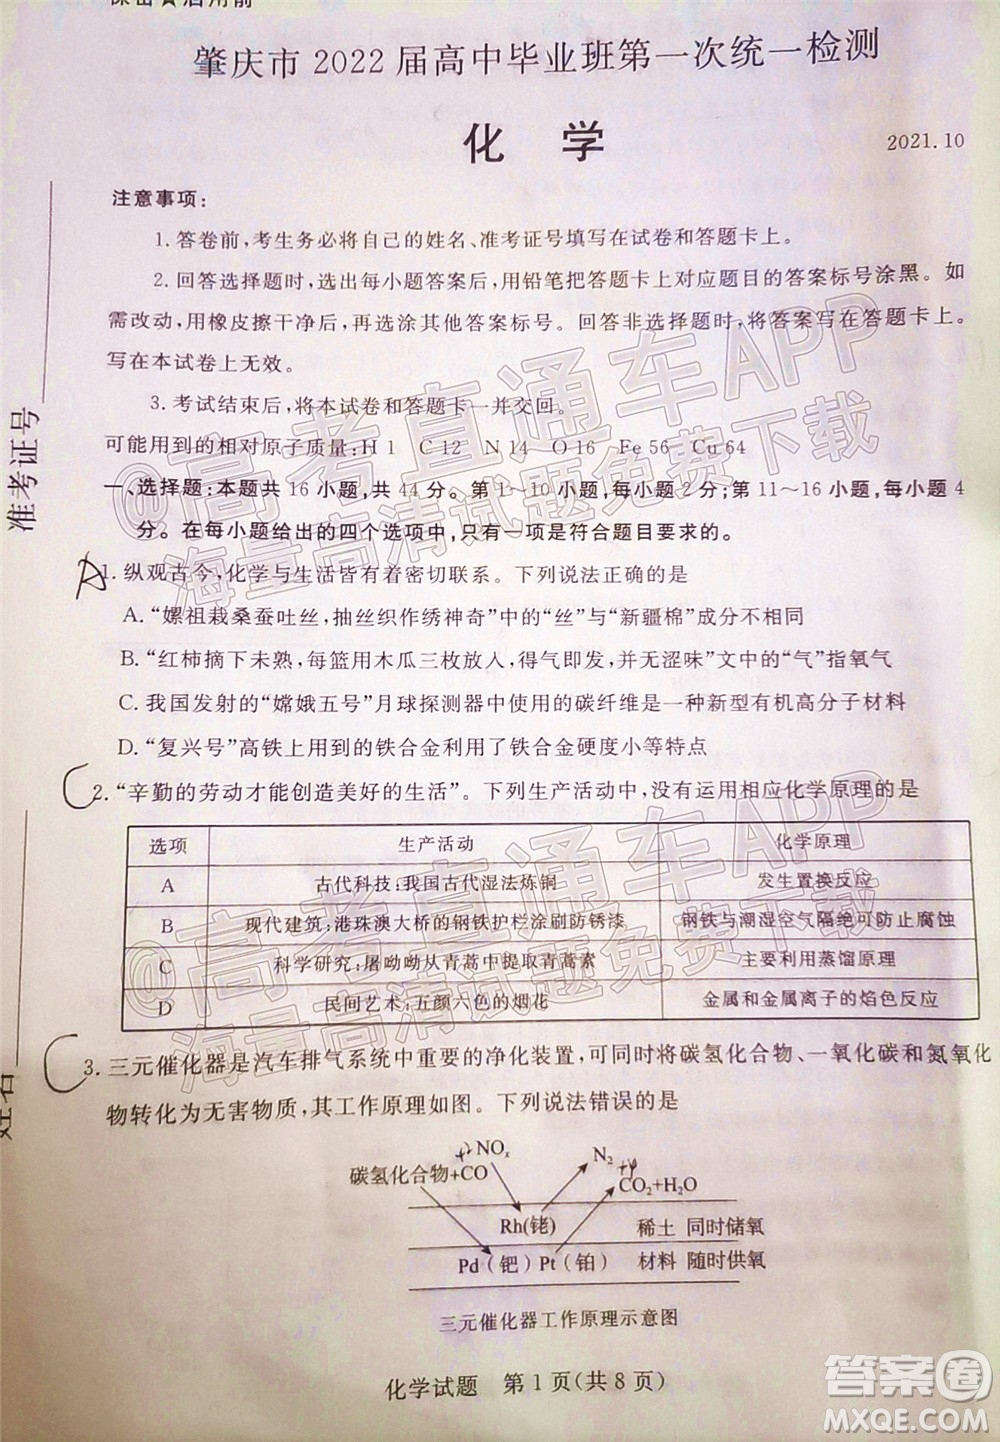 保密★启用前
肇庆市 2022 届高中毕业班第一次统一检测
化 学
2021.10
注意事项:
1. 答卷前,考生务必将自己的姓名、准考证号填写在试卷和答题卡上。
2. 回答选择题时,选出每小题答案后,用铅笔把答题卡上对应题目的答案标号涂黑。如
需改动,用橡皮擦干净后,再选涂其他答案标号。回答非选择题时,将答案写在答题卡上。
写在本试卷上无效。
3. 考试结束后,将本试卷和答题卡一并交回。
可能用到的相对原子质量:H 1 C 12 N 14 O 16 Fe 56 Cu 64
一、选择题:本题共 16 小题,共 44 分。第 1~10 小题,每小题 2 分;第 11~16 小题,每小题 4
分。在每小题给出的四个选项中,只有一项是符合题目要求的。
A
1. 纵观古今,化学与生活皆有着密切联系。下列说法正确的是
A. “嫘祖栽桑蚕吐丝,抽丝织作绣神奇”中的“丝”与“新疆棉”成分不相同
B. “红柿摘下未熟,每篮用木瓜三枚放入,得气即发,并无涩味”文中的“气”指氧气
C. 我国发射的“嫦娥五号”月球探测器中使用的碳纤维是一种新型有机高分子材料
D. “复兴号”高铁上用到的铁合金利用了铁合金熔点高、硬度小等特点
C
2. “辛勤的劳动才能创造美好的生活”。下列生产活动中,没有运用相应化学原理的是
选项 生产活动 化学原理
A 古代科技:我国古代湿法炼铜 发生置换反应
B 现代建筑:港珠澳大桥的钢铁护栏涂刷防锈漆 钢铁与潮湿空气隔绝可防止腐蚀
C 科学研究:屠呦呦从青蒿中提取青蒿素 主要利用蒸馏原理
D 民间艺术:五颜六色的烟花 金属和金属离子的焰色反应
C
3. 三元催化器是汽车排气系统中重要的净化装置,可同时将碳氢化合物、一氧化碳和氮氧化
物转化为无害物质,其工作原理如图。下列说法错误的是
NOx N2
碳氢化合物+CO CO2+H2O
Rh(铑) 稀土 同时储氧
Pd(钯) Pt(铂) 材料 随时供氧
三元催化器工作原理示意图
化学试题 第 1 页(共 8 页)
准考证号
姓名
@高考直通车APP
海量高清试题免费下载
@高考直通车APP
海量高清试题免费下载
答案圈
MXQE.COM